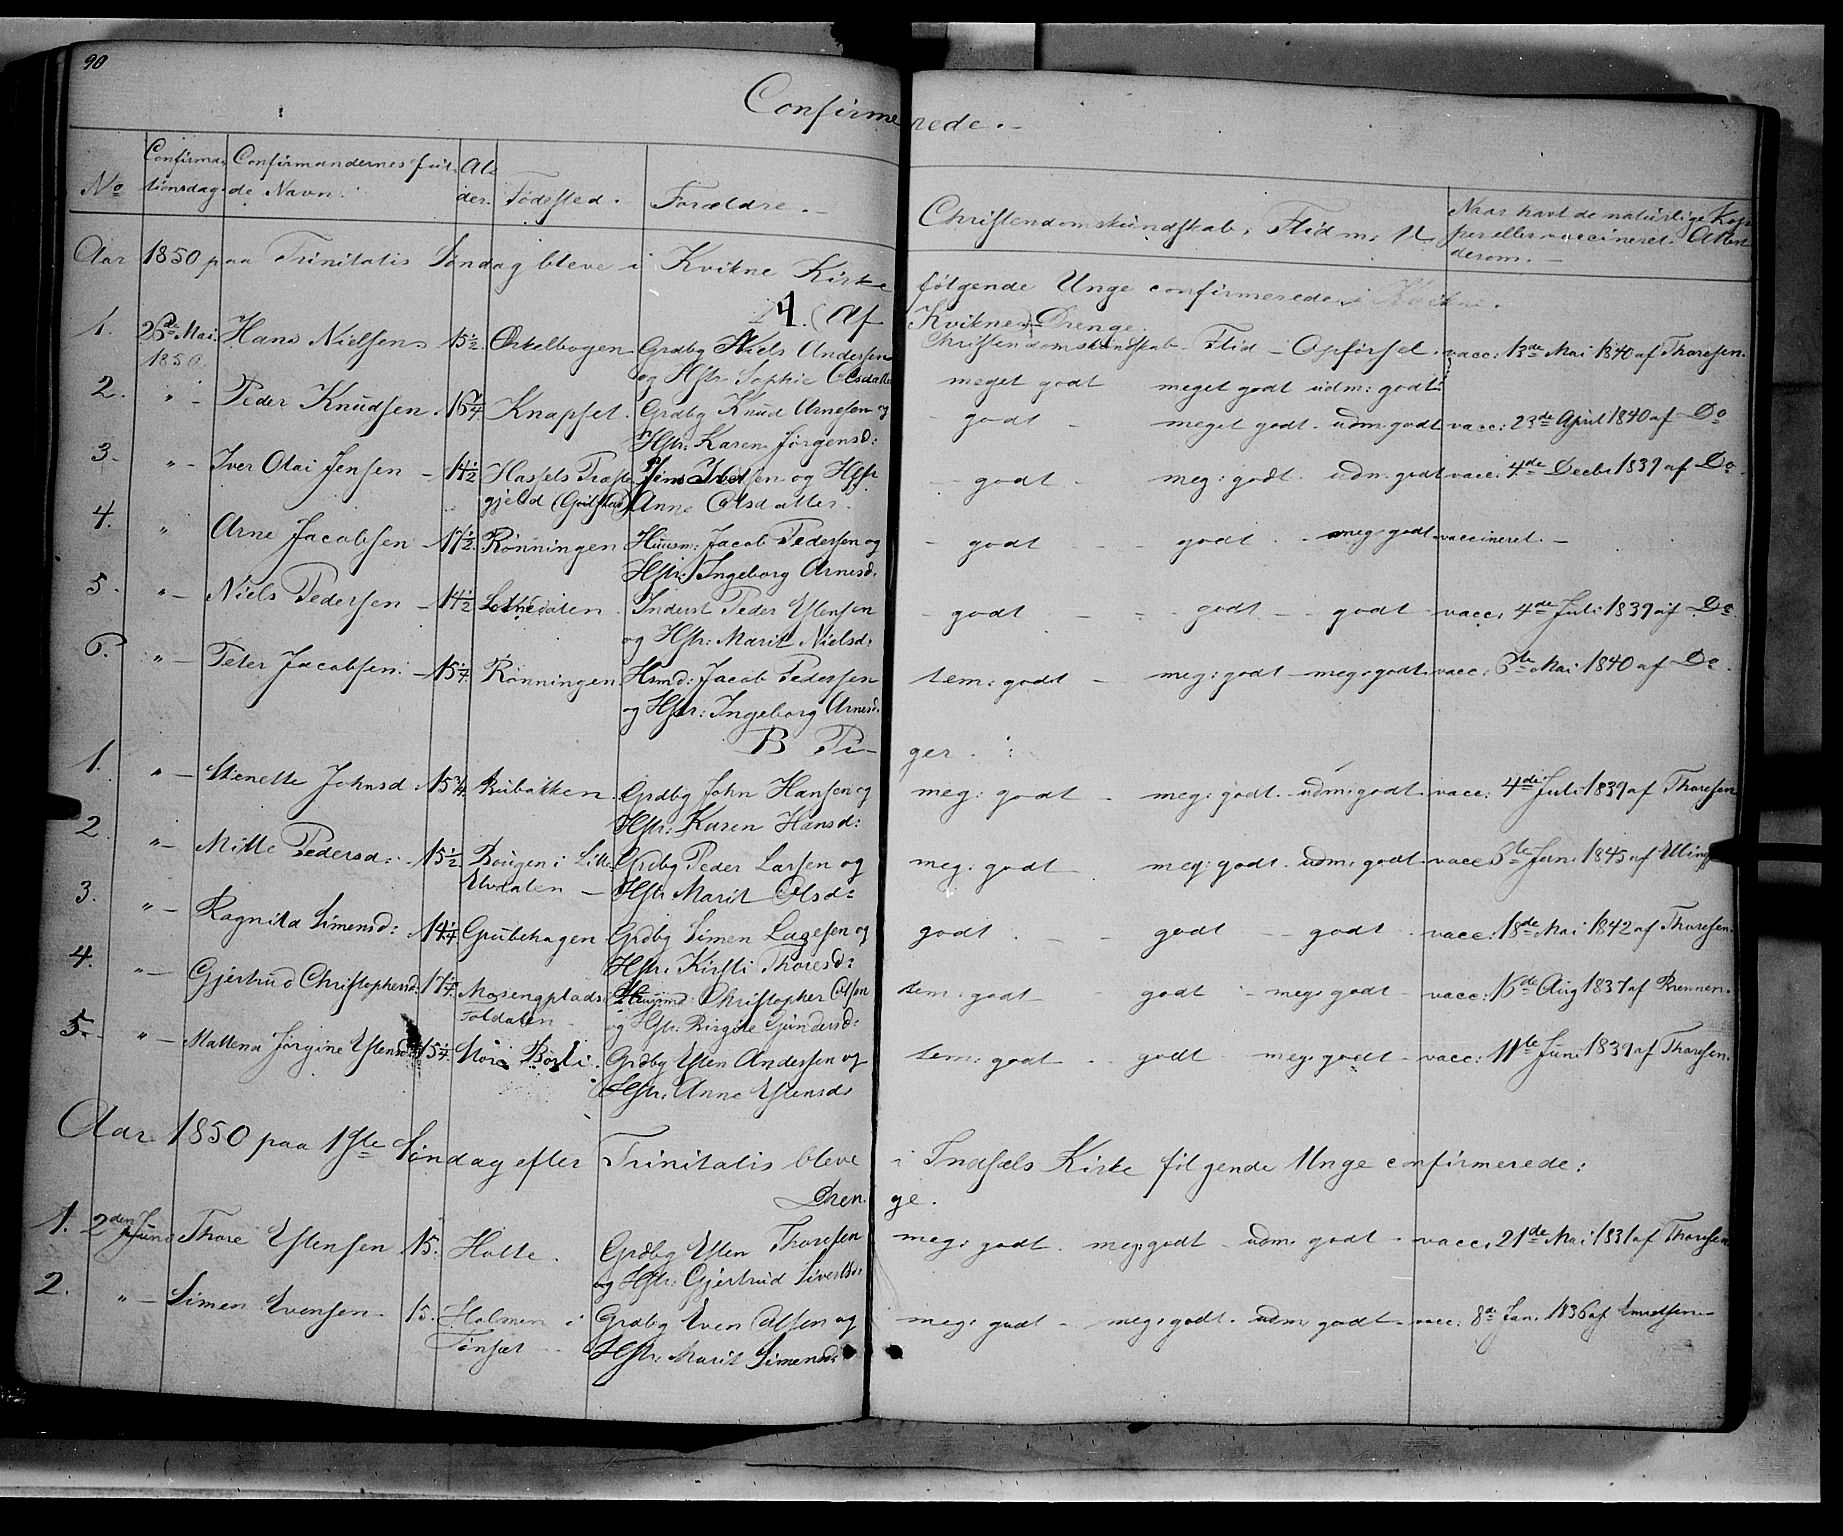 90
Confirmerede.-
No Confirmationsdag. Confirmandernes fulde Navn. Alder. Fødested. Forældre. Christendomskundskab, Flid m. M. Naar havt de naturlige Kopper eller vaccineret. Attest derom.-
Aar 1850 paa Trinitatis Søndag bleve i Kvikne Kirke følgende Unge confirmerede i Kvikne.
A. (Af Kvikne) Drenge.
Christendomskundskab - Flid - Opførsel.
1. 26de Mai 1850. Hans Nielsen 15 1/2. Orkelbogen Grdbg Niels Andersen og Hstr. Sophie Olsdatter meget godt meget godt udm: godt vacc: 13de Mai 1840 af Thoresen.
2. " - Peder Knudsen. 16 1/4 Knapset. Grdbg Knud Arnesen og Hstr. Karen Jørgensd: godt meget godt. udm: godt vacc: 23de April 1840 af Do
3. " - Iver Olai Jensen - 14 1/2 Hassels Præstegjeld Jens Iversen og Hstr Anne Olsdatter. - godt - meg: godt. udm. godt vacc: 4de Decbr 1839 af Do
4. " Arne Jacobsen - 17 1/2. Rønningen Huusm: Jacob Pedersen og Hstr: Ingeborg Arnesd. - godt - - godt. - meg: godt vaccineret. -
5. " - Niels Pedersen - 14 1/2 Inderst Peder Estensen og Hstr: Marit Nielsd: - godt - - godt - - godt - vacc: 4de Juli 1839 af Do
6. " - Peter Jacobsen. - 15 1/4. Rønningen. Hsmd: Jacob Pedersen og Hstr: Ingeborg Arnesd. tem: godt - meg: godt - meg: godt vacc: 6te Mai 1840 af Do.
B Piger.
1. " - Johnsd. 15 3/4. Grdbg John Hansen og Hstr: Karen Hansd: meg: godt - meg: godt. udm: godt. vacc: 4de Juli 1839 af Thoresen
2. " - Mille Pedersd: - 15 1/2 i Lille Elvdalen - Grdbg Peder Larsen og Hstr Marit Olsd: meg: godt. meg: godt. udm: godt. vacc. 6te Juni 1845 af
3. " - Ragnild Simensd: 14 1/4 Grubehagen Grdbg Simen Lagesen og Hstr. Kirsti Thoresd: godt. - - godt - - godt. vacc: 18de Mai 1842 af Thoresen.
4. " - Gjertrud Christophersd. 17 1/4. Mosengplads Foldalen - Huusmd: Christopher Olsen og Hstr: Birgite Gundersd: tem: godt - godt - meg: godt - vacc: 16de Aug 1837 af Brennen.
5. " - Mattena Jørgine Estensd. 15 1/4. Store Bogli. Grdbg Esten Andersen og Hstr. Anne Estensd: tem: godt - godt meg: godt - vacc: 11te Juni 1839 af Thoresen.
Aar 1850 paa 1ste Søndag efter Trinitatis bleve i Indsæts Kirke følgende Unge confirmerede:
Drenge.
1. 2den Juni Thore Estensen 15. Holte. Grdbg Esten Thoresen og Hstr: Gjertrud Sivertsd: meg: godt. meg: godt - udm. godt - vacc. 21de Mai 1831 af Thoresen
2. " - Simen Evensen - 15. Holmen i Tønset - Grdbg Even Olsen og Hstr: Marit Simensd: meg: godt - meg: godt. udm. godt - vacc. 8de Jan. 1836 af